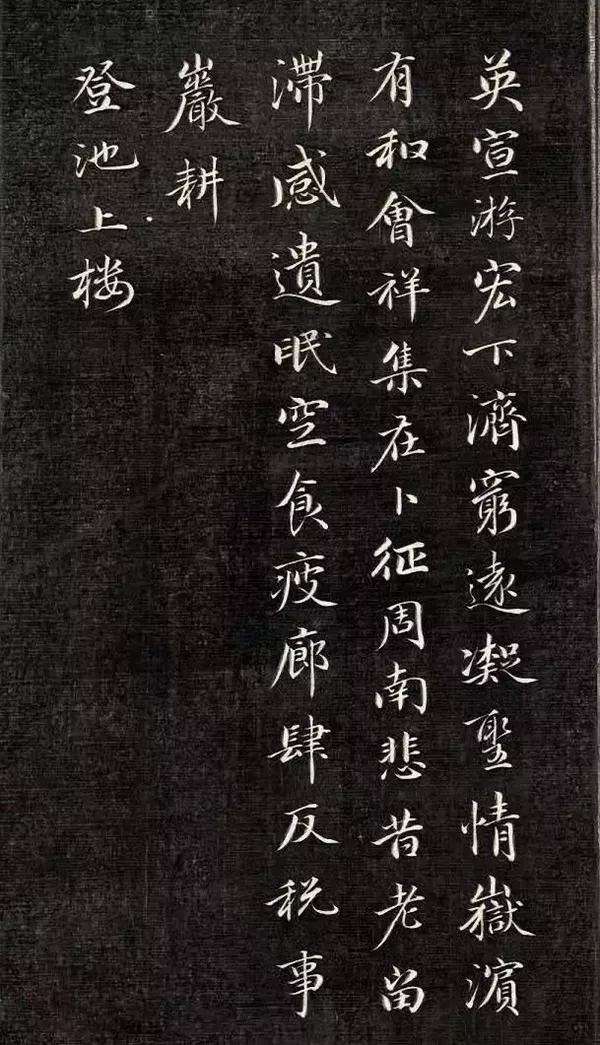 英宣游宏下濟窮遠凝聖情嶽濱
有和會祥集在卜征周南悲昔老留
滞感遺眠空食疲廊肆反税事
巖耕
登池上楼